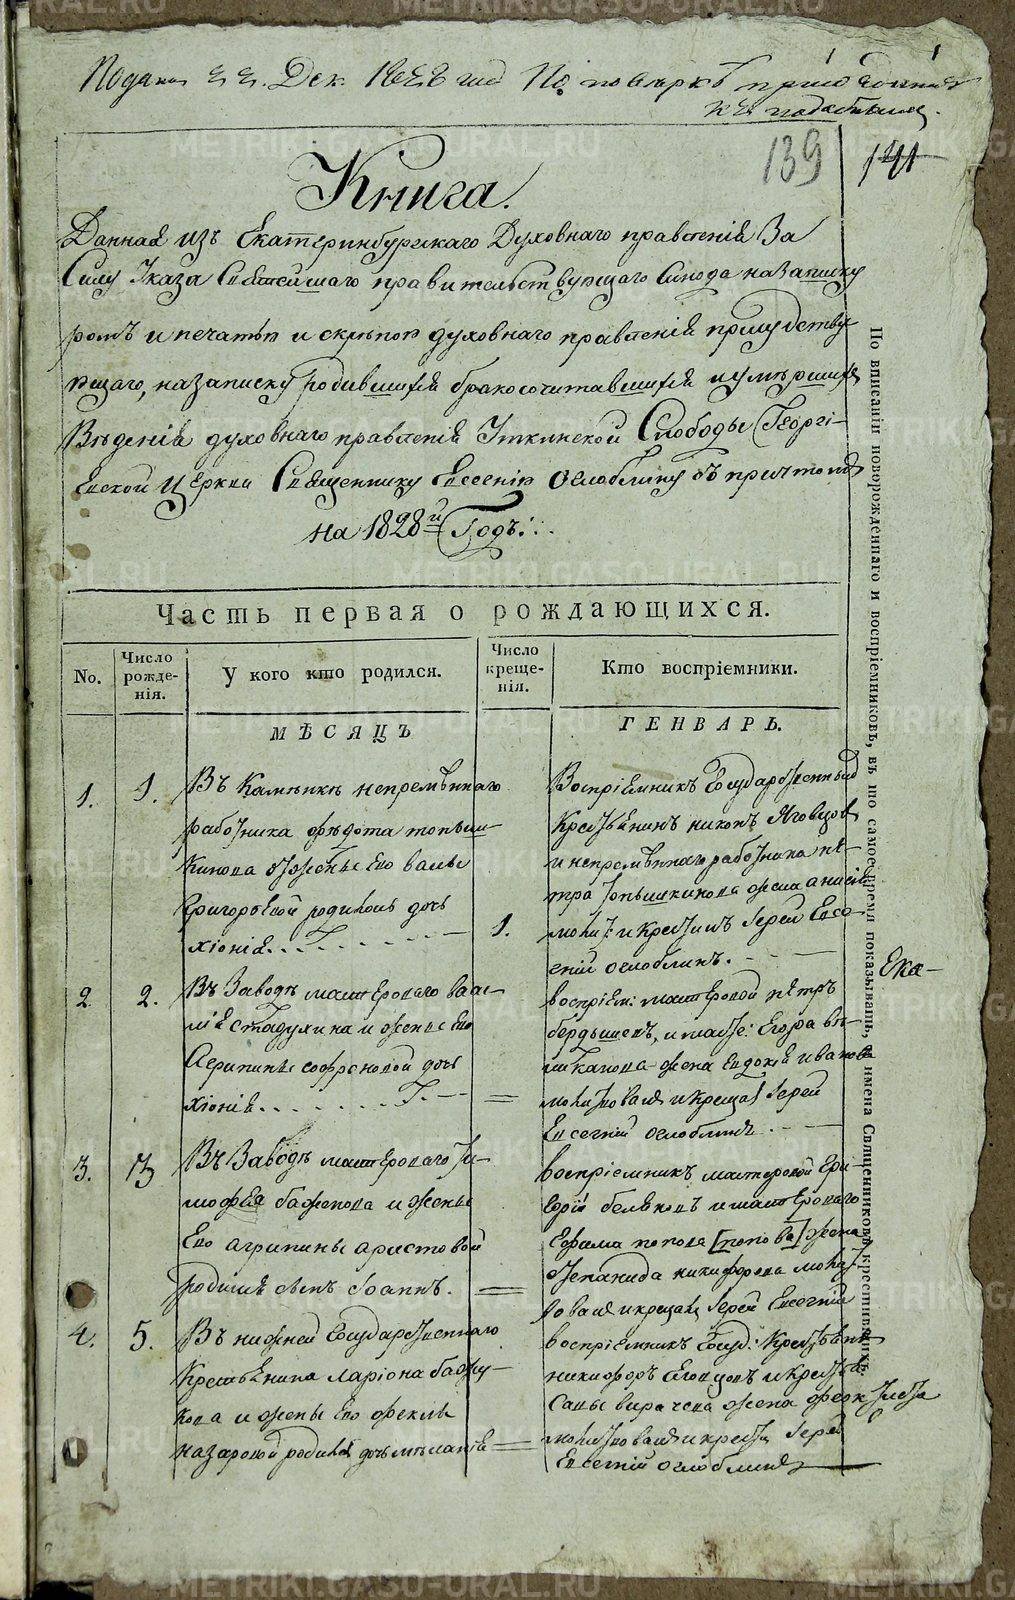 139
141
Книга
Данная изъ Екатеринбургскаго Духовнаго правленія За
Силу Указа Святейшаго правительствующаго Синода на записку
и печатью и скрепою духовнаго правленія присудству-
ющаго, на записку родившихся бракосочитавшихся и умершихъ
Вѣденія духовнаго правленія Уткинской Слободы Георгі-
евской Церкви Священнику Евсенію Оглоблину съ причтомъ
на 1828й Годъ:
Часть первая о рождающихся.
No. Число рожде-нія. У кого кто родился. Число креще-нія. Кто воспріемники.
МѢСЯЦЪ ГЕНВАРЬ.
1. 1. Въ Каменкѣ непремѣннаго
работника федота топыш-
кинова жены его
Григорьевой родилась дочь
хіонія
1.
Воспріемникъ Государственный
Крестьянинъ никонъ Яговцовъ
и непремѣннаго работника пе-
тра топышкинова жена анисія
и крестилъ Іерей Евсе-
гній оглоблинъ.
2. 2. Въ Заводѣ мастероваго васи-
лія стадулина и жены его
Агрипины софроновой дочь
хіонія
воспріем: мастеровой петръ
бердышевъ, и Егора
жена евдокія иванова
и крещалъ Іерей
Евсегній оглоблинъ.
3. 13 Въ Заводѣ мастероваго ти-
мофея баженова и жены
Его агрипины аристовой
родился сынъ Іоаннъ.
воспріемникъ мастеровой гри-
горій беляковъ и мастероваго
Ефима попова [попова] жена
степанида никифорова
и крещалъ Іерей Евсегній
4. 5. Въ нижней Государственнаго
Крестьянина ларіона бажу-
кова и жены его феклы
назаровой родилась дочь меланія
воспріемникъ Госуд: Крестьянинъ
никифоръ Яговцовъ и крестья-
Савы вирачева жена феоктиста
и крести Іерей
Евсегній оглоблинъ
Ека-
По вписаніи новорожденнаго и воспріемниковъ, въ то самое время показывать, и имена Священниковъ крестившихъ.
METRIKI.GASO-URAL.RU